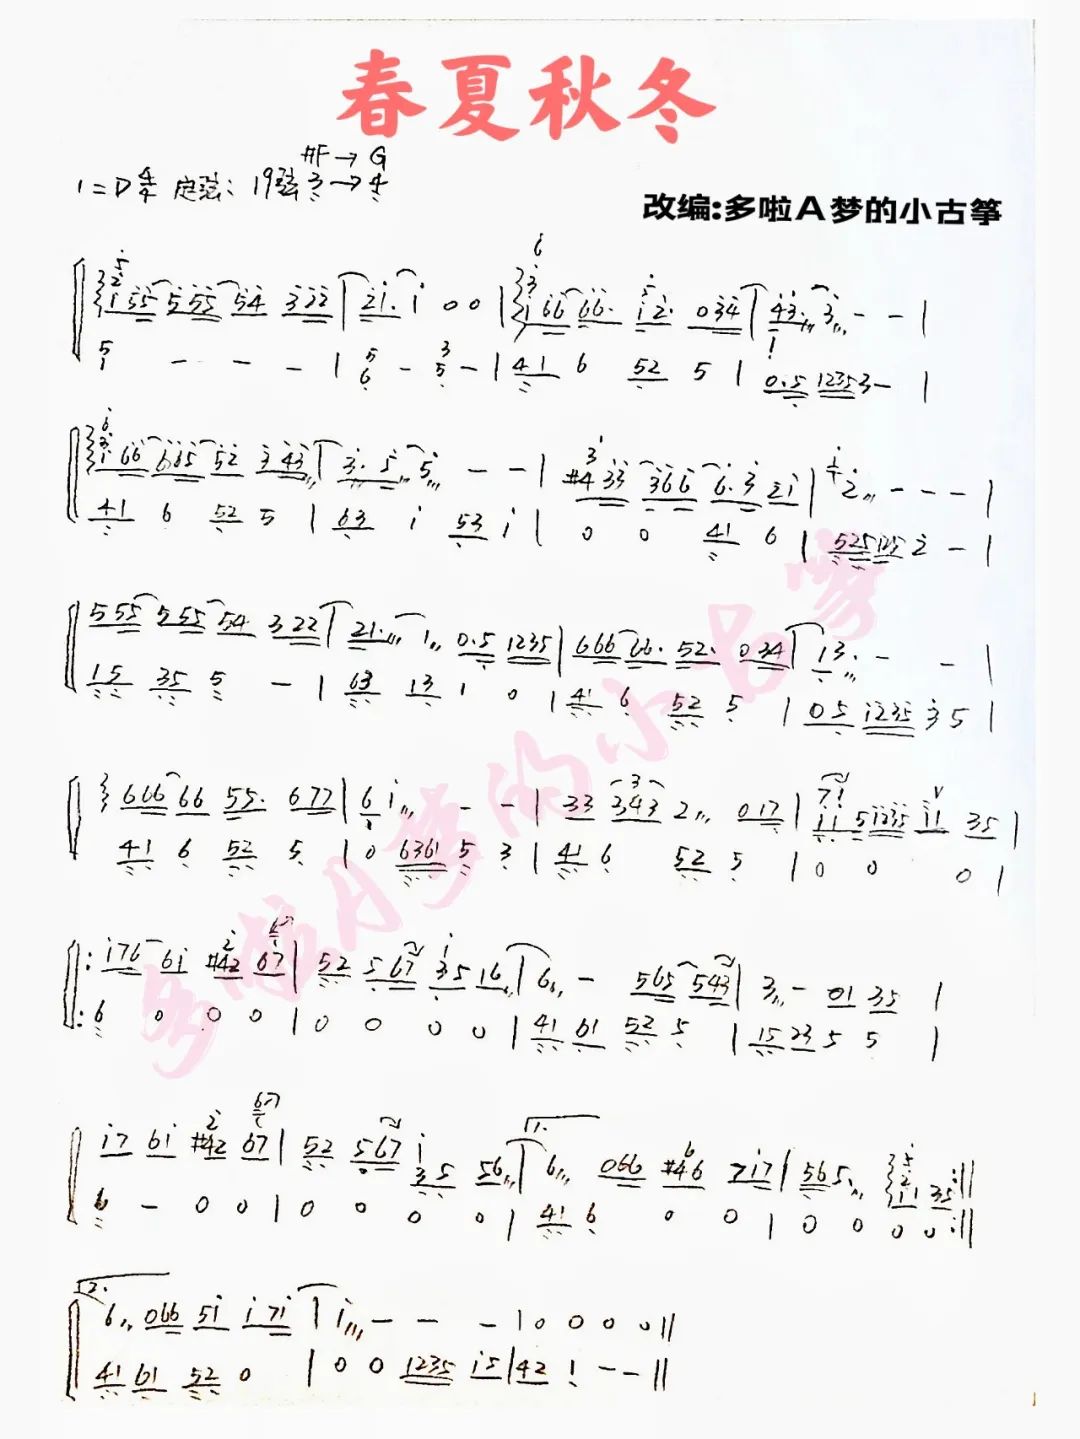 春夏秋冬
#F→G
1=D 4/4 定弦: 19弦 3→4
改编:多啦A梦的小古筝
5
2
1 55 555 54 322 | 21. 1 0 0 | 1 66 66. 12. 034 | 43. 3 - - |
5
1 - - - | 6 - 5 - | 41 6 52 5 | 0.5 1235 3 - |
1 66 665 52 343 | 3. 5 5 - - | #4 33 366 6.3 21 | 2 - - - |
41 6 52 5 | 63 1 53 1 | 0 0 41 6 | 525125 2 - |
555 555 54 322 | 21. 1 0.5 1235 | 666 66. 52. 034 | 13. - - |
15 35 5 - | 63 13 1 0 | 41 6 52 5 | 05 1235 35 |
666 66 55. 677 | 6 1 - - | 33 343 2 017 | 11 51235 11 35 |
41 6 52 5 | 0 6361 5 3 | 41 6 52 5 | 0 0 0 |
: 176 61 #42 67 | 52 567 35 16 | 6 - 565 543 | 3 - 01 35 |
: 6 0 0 0 | 0 0 0 0 | 41 61 52 5 | 15 23 5 5 |
17 61 #42 67 | 52 567 35 56 | 6 066 #46 717 | 565 11 35 :||
6 - 0 0 | 0 0 0 0 | 41 6 0 0 | 0 0 0 0 :||
2.
6 066 51 171 | 1 - - - | 0 0 0 0 ||
41 61 52 0 | 0 0 1235 15 | 42 1 - - ||
多啦A梦的小古筝